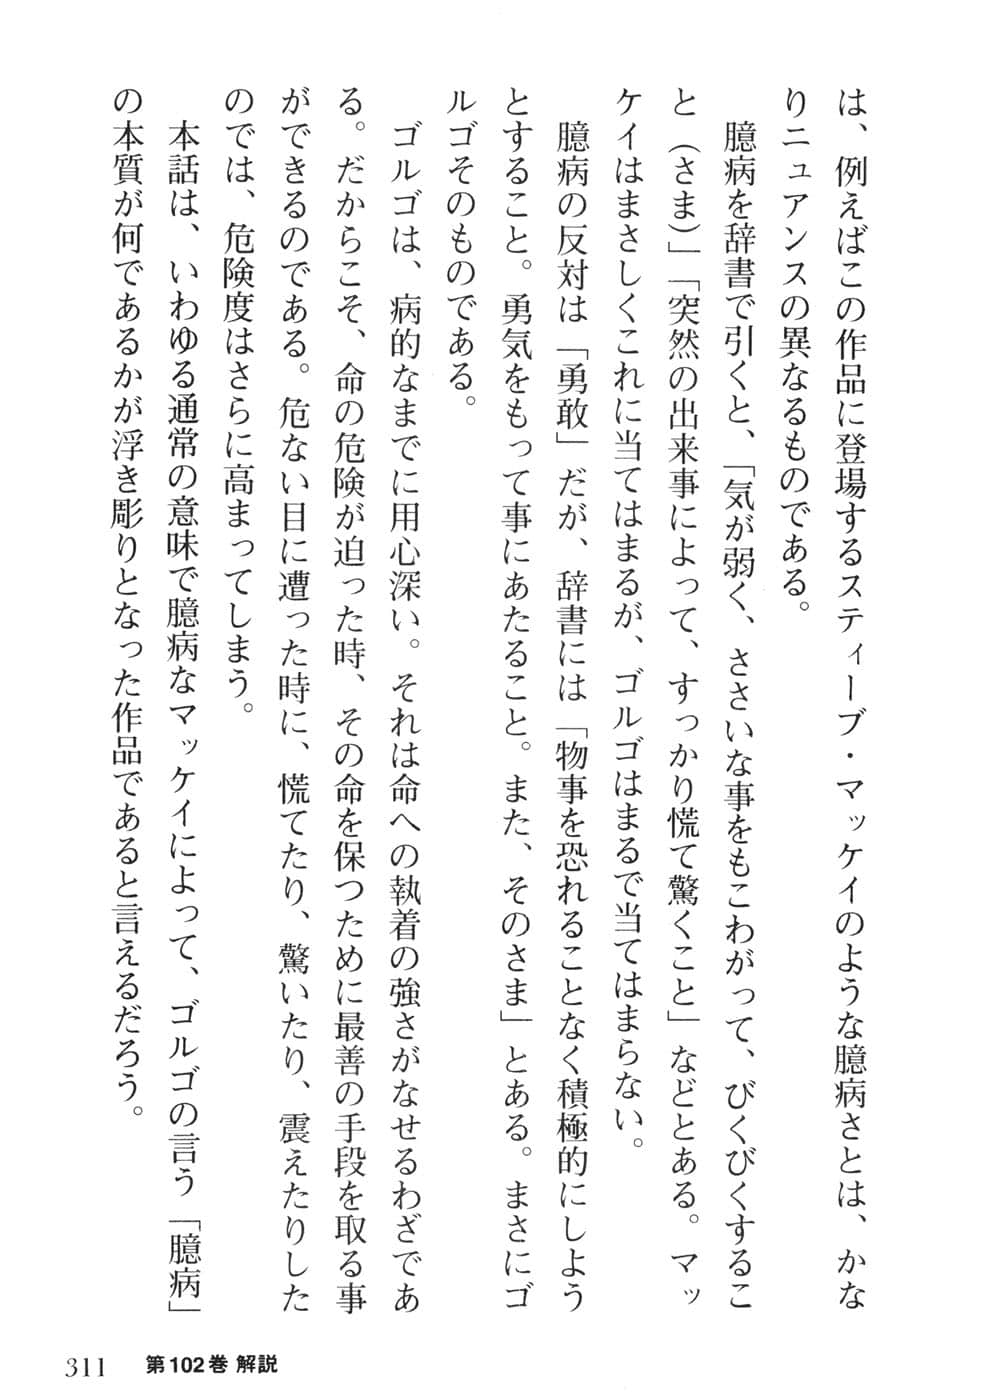 は、例えばこの作品に登場するスティーブ・マッケイのような臆病さとは、かな
りニュアンスの異なるものである。
臆病を辞書で引くと、「気が弱く、ささいな事をもこわがって、びくびくするこ
と（さま）」「突然の出来事によって、すっかり慌て驚くこと」などとある。マッ
ケイはまさしくこれに当てはまるが、ゴルゴはまるで当てはまらない。
臆病の反対は「勇敢」だが、辞書には「物事を恐れることなく積極的にしよう
とすること。勇気をもって事にあたること。また、そのさま」とある。まさにゴ
ルゴそのものである。
ゴルゴは、病的なまでに用心深い。それは命への執着の強さがなせるわざであ
る。だからこそ、命の危険が迫った時、その命を保つために最善の手段を取る事
ができるのである。危ない目に遭った時に、慌てたり、驚いたり、震えたりした
のでは、危険度はさらに高まってしまう。
本話は、いわゆる通常の意味で臆病なマッケイによって、ゴルゴの言う「臆病」
の本質が何であるかが浮き彫りとなった作品であると言えるだろう。
311 第102巻 解説